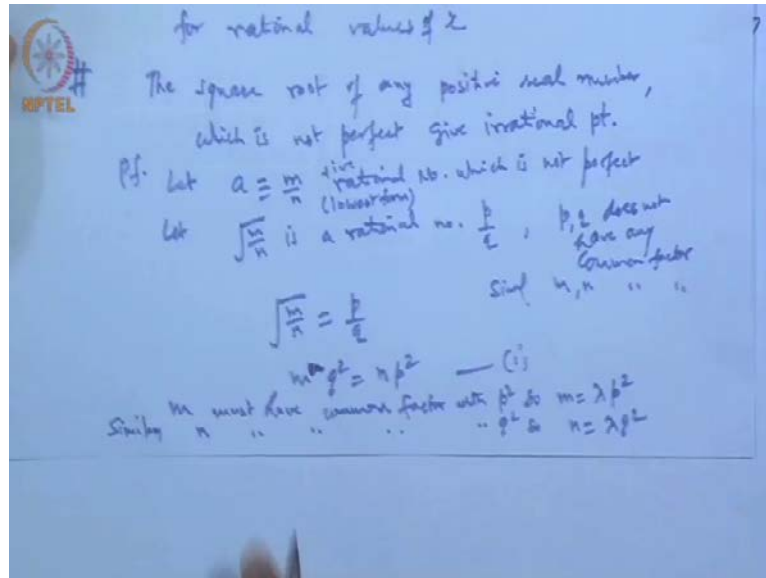 for rational values of x
7
NPTEL
# The square root of any positive real number,
which is not perfect give irrational pt.
Pf. Let a = m/n +ive rational No. which is not perfect
(lowest form)
Let √m/n is a rational no. p/q , p,q does not
have any
common factor
Siml m,n " "
√m/n = p/q
m q² = n p² — (1)
m must have common factor with p² so m = λp²
Similarly n " " " " q² so n = λq²